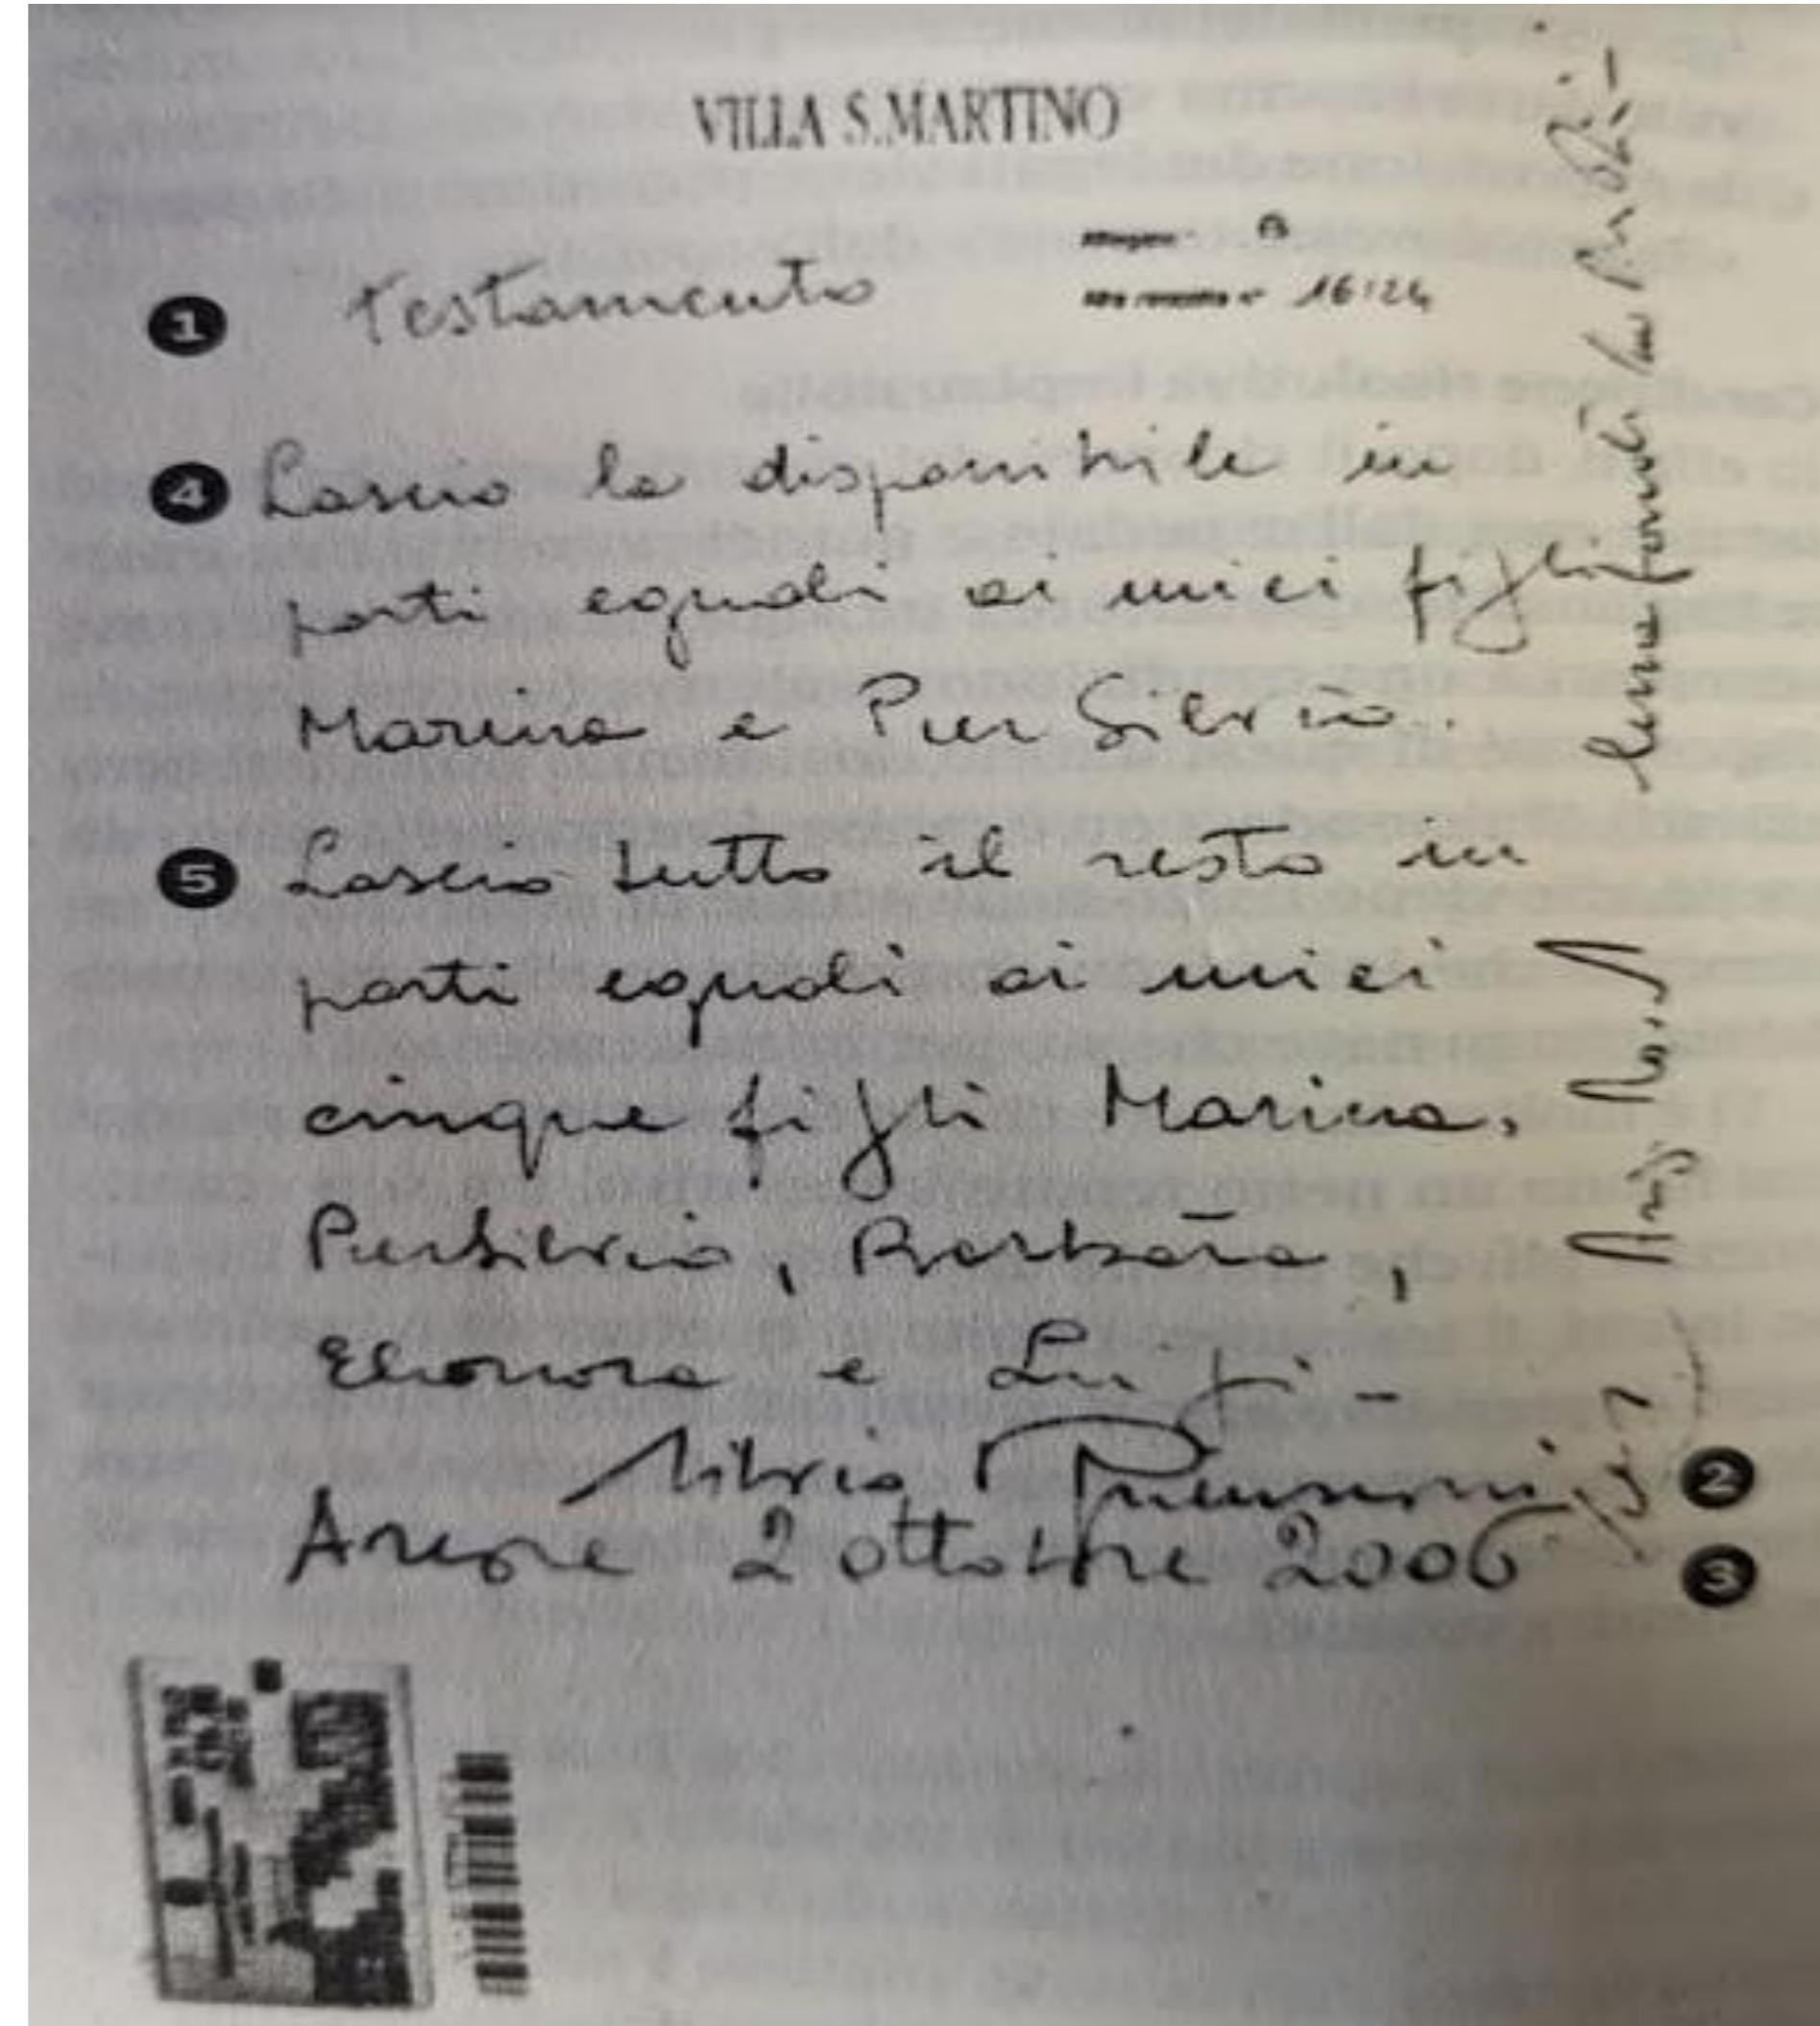 VILLA S.MARTINO
B
16124
1 Testamento
4 Lascio la disponibile in
parti eguali ai miei figli
Marina e Pier Silvio.
5 Lascio tutto il resto in
parti eguali ai miei
cinque figli Marina,
PierSilvio, Barbara,
Eleonora e Luigi -
Silvio Berlusconi
2
Arcore 2 ottobre 2006
3